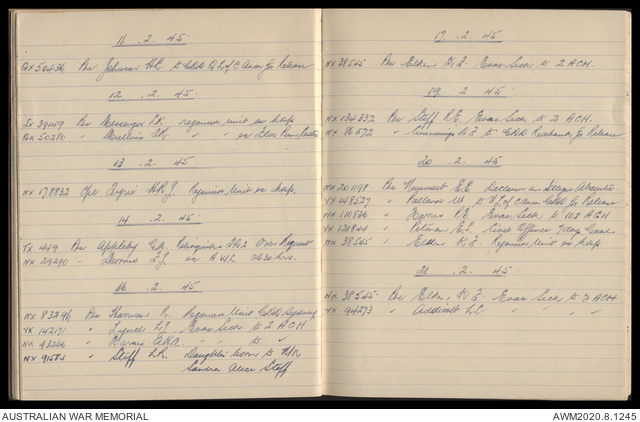 11 . 2 . 45
QX 50436 Pte Johnson H.G. to GDD Q L of C Area for Release
12 . 2 . 45
SX 39149 Pte Messenger P.K. rejoins unit ex hosp
QX 50280 " Mullins " " ex
13 . 2 . 45
NX 178832 Cpl H.R.J. Rejoins Unit ex hosp.
14 . 2 . 45
TX 449 Pte Appleby G.A. Relinquishes Own Request
NX 29290 " L.J. ex AWL 0630 hrs.
16 . 2 . 45
NX 83296 Pte Harrison R. Rejoins Unit GDD Sydney
VX 142171 " Lynch L.J. Evac Sick to 2 ACH
NX 93266 " " " to "
NX 91584 " Steff L.R. Daughter born to N/K
Sandra Alice Steff
17 . 2 . 45
NX 38545 Pte Elder K.J. Evac Sick to 2 ACH.
19 2 45
NX 134332 Pte Steff R.E. Evac Sick to 2 ACH.
NX 86572 " Cummings B.J. to GDD for Release
20 . 2 . 45
NX 201198 Pte E.E. Declared an Illegal Absentee
VX 148527 " Pallant W. to Q L of C Area GDD for Release
NX 110876 " Harris P.E. Evac Sick to 102 AGH
VX 121844 " E.S. Civil Offence 7 days Gaol
NX 38545 " Elder K.J. Rejoins Unit ex hosp
21 . 2 . 45
NX 38545 Pte Elder, K.J. Evac Sick to 2 ACH
VX 94273 " Addicott L.C. " " "
AUSTRALIAN WAR MEMORIAL
AWM2020.8.1245